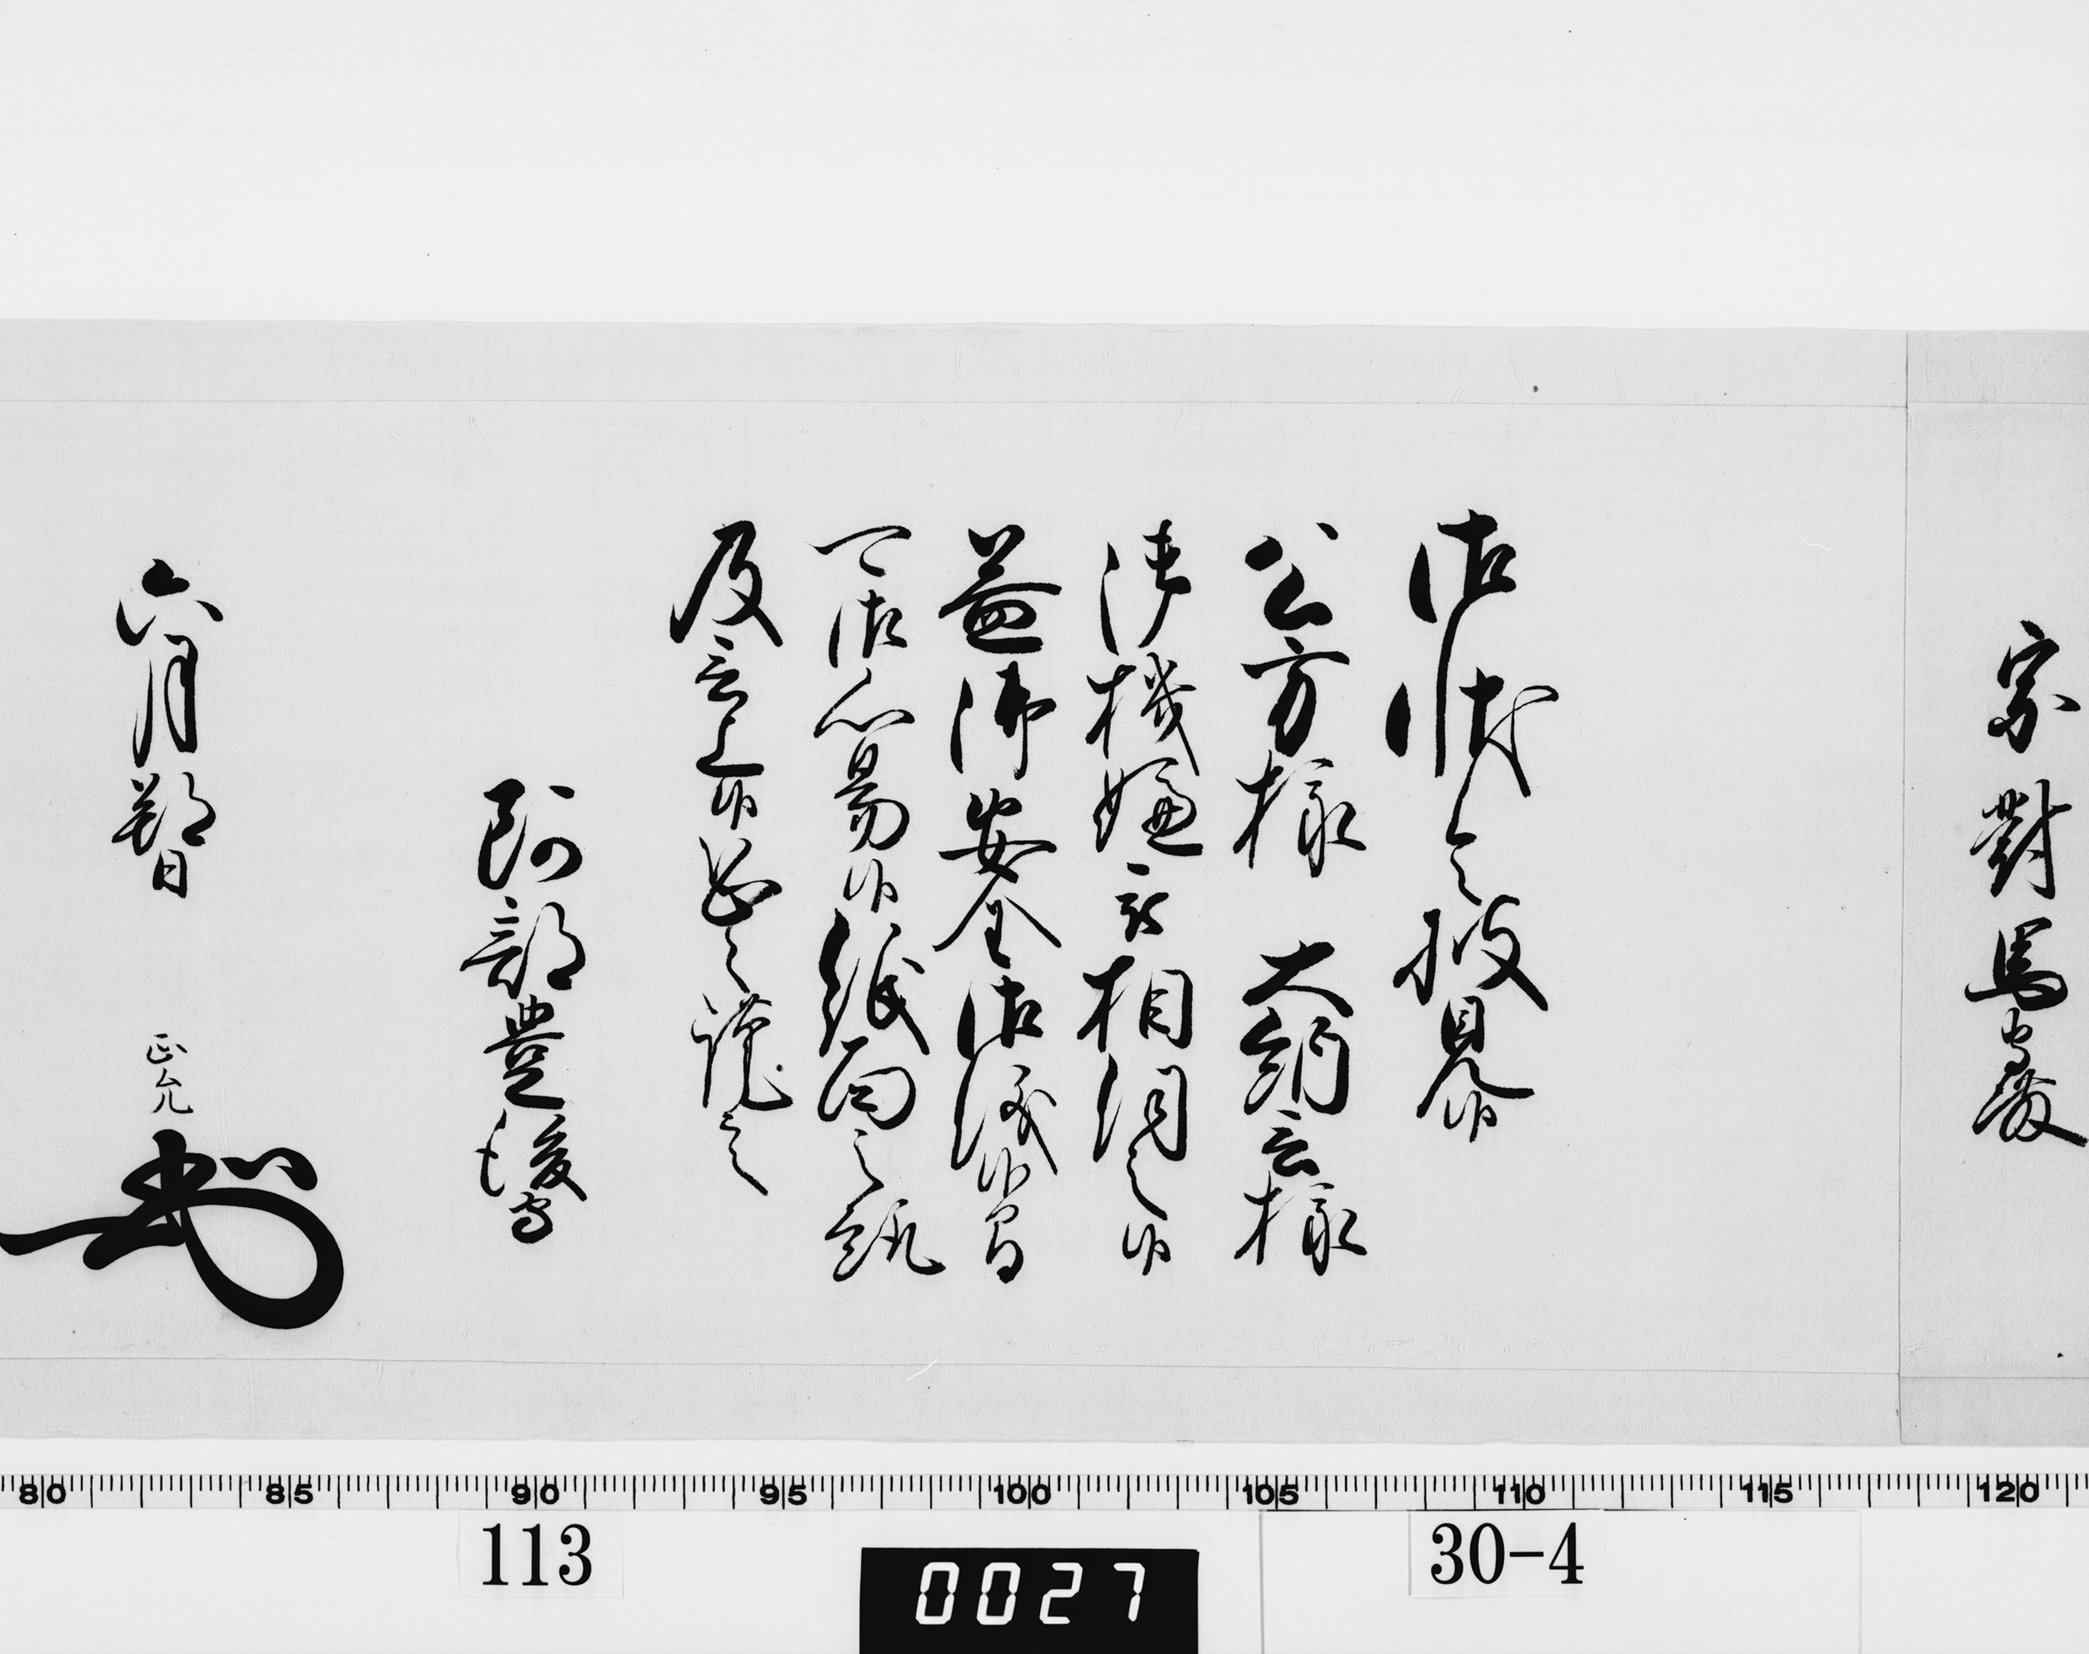 宗對馬守殿
御状令披見候
公方様 大納言様
御機嫌被相伺之候
益御安全御儀候間
可御心易候紙面之趣
及言上候恐々謹言
阿部豊後守
六月朔日
正允
80 85 90 95 100 105 110 115 120
113
30-4
0027